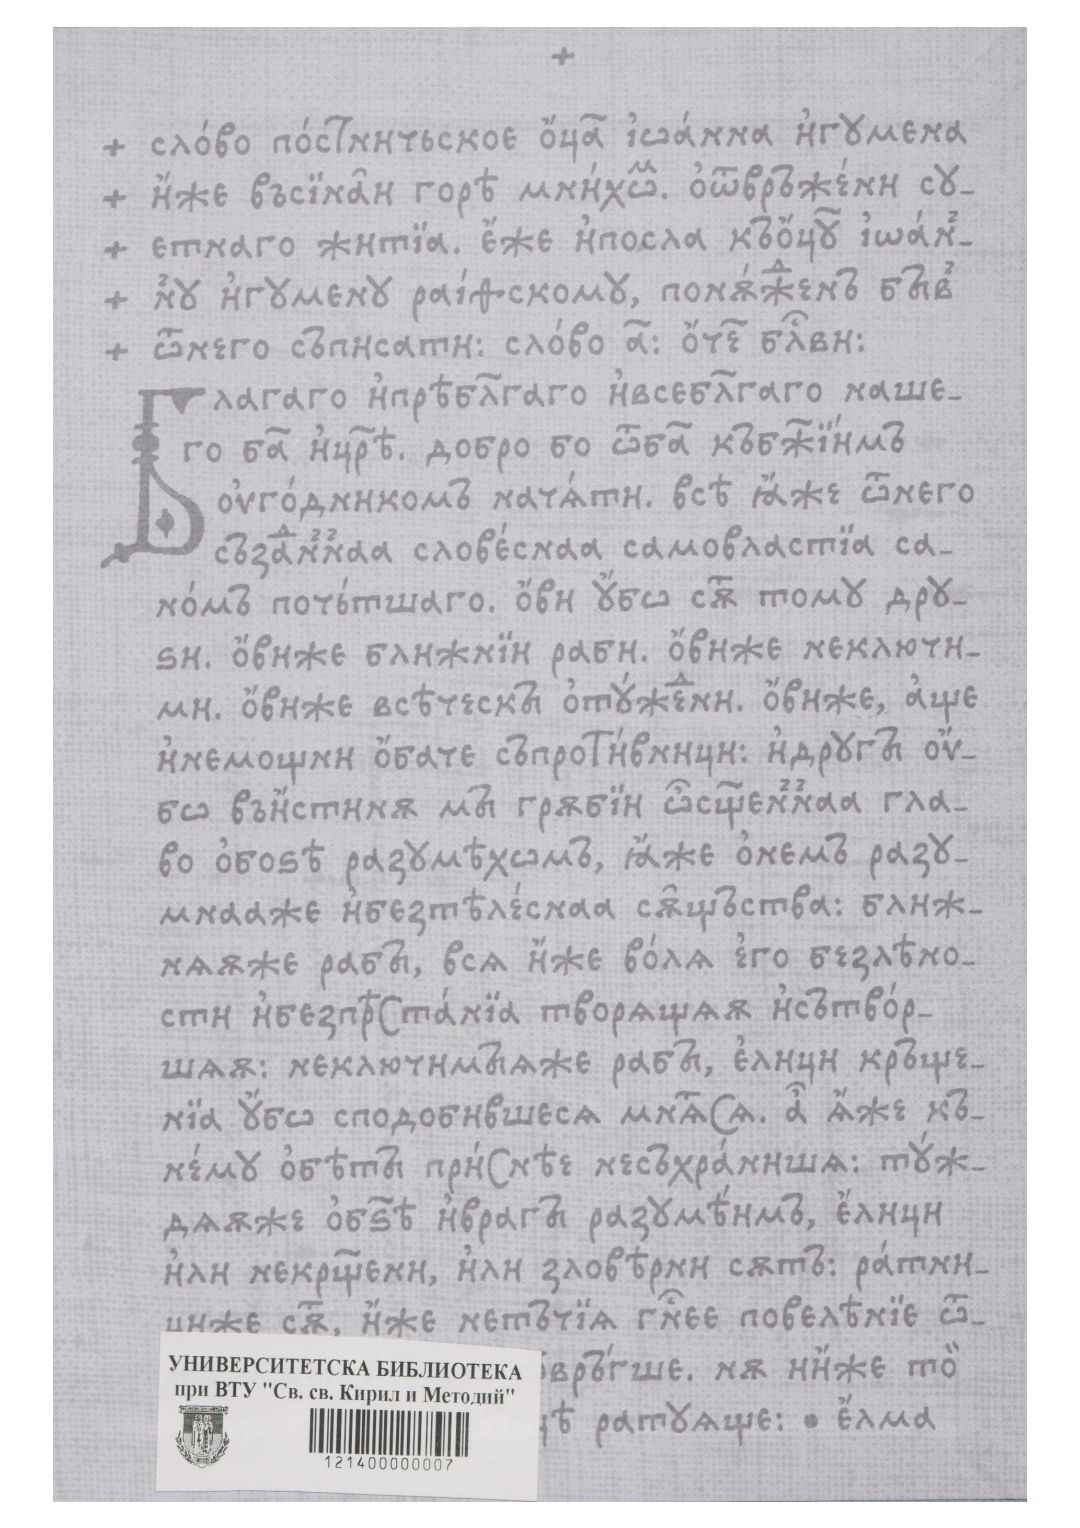 +
+ сло́во по́стничьскоє ѻ҆ц҃а і҆ѡа́нна и҆гꙋмєна
+ и҆́жє въсїна̑и горѣ мни́хѡⷨ. ѻ҆ѿвръжє́ни сꙋ-
+ єтнаго житїа. є҆́жє и҆посла къѻ҆ц҃ꙋ і҆ѡа́н-
+ нꙋ и҆гꙋмєнꙋ раі́ѳскомꙋ, понꙋ́ждєнъ бъів
+ ѿнєго съписати: сло́во а҃: ѻ҆́ч҃є бл҃ви:
Благаго и҆прѣбл҃гаго и҆всєбл҃гаго нашє-
го б҃а и҆ц҃рѣ. добро бо ѿб҃а къбж҃їимъ
ѹ҆го́дникомъ нача́ти. всѣ ꙗ҆́жє ѿнєго
създаннаа словє́снаа самовластїа са-
но́мъ почь́тшаго. ѻ҆́ви ᲂу҆́бѡ сѫⷮ томꙋ дрꙋ-
ѕи. ѻ҆́вижє ближнїи раби. ѻ҆́вижє нєключи-
ми. ѻ҆́вижє всѣчєскъі ѻ҆тꙋ́ждєни. ѻ҆́вижє, а҆́щє
и҆нємощни ѻ҆ба́чє съпроти́вници: и҆дрꙋгъі ѹ҆́-
бѡ въи҆́стинѫ мъі грѫбїи ѡ҆сщ҃єннаа гла-
во ѻ҆боѕѣ разꙋмѣхѡмъ, ꙗ҆́жє ѻ҆нємъ разꙋ-
мнаажє и҆бєзтѣлє́снаа сѫщъства: ближ-
нѧѫжє рабъі, всѧ и҆́жє во́лѧ є҆го бєзлѣно-
сти и҆бєзпрѣста́нїа творѧщѧѫ и҆сътво́р-
шѧѫ: нєключимъіѧжє рабъі, є҆́лици крьщє-
нїа ᲂу҆́бѡ сподобившєсѧ мнѧⷮсѧ. а҆̑ ѧ҆́жє къ-
нє́мꙋ ѻ҆бѣтъі при́снѣє нєсъхра́нишѧ: тꙋ́ж-
дѧѫжє ѻ҆бѕ҃ѣ и҆врагъі разꙋмѣ́имъ, є҆́лици
и҆ли нєкрщ҃єни, и҆ли зловѣ́рни сѫтъ: ра́тни-
цижє сѫⷮ, и҆́жє нєтъчїѧ гн҃єє повєлѣнїє ѿ-
връ́гшє. нѫ ни҆́жє то
ратꙋѧщє: • є҆́лма
УНИВЕРСИТЕТСКА БИБЛИОТЕКА
при ВТУ "Св. св. Кирил и Методий"
121400000007